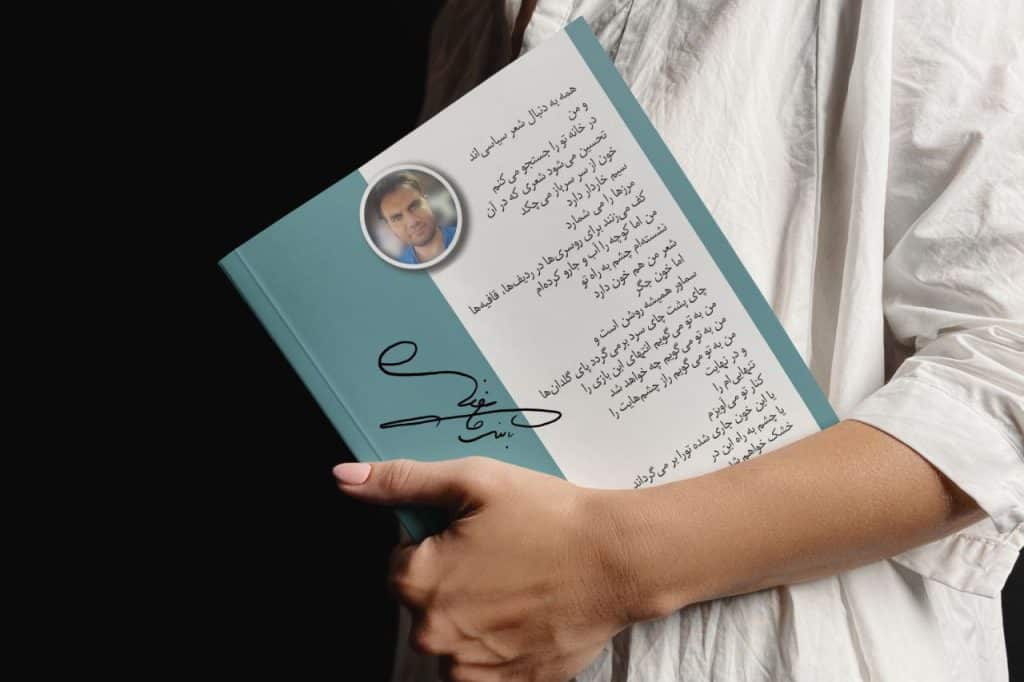 همه به دنبال شعر سیاسی‌اند
و من
در خانه تو را جستجو می کنم
تحسین می‌شود شعری که در ان
خون از سر سرباز می‌چکد
سیم خاردار دارد
مرزها را می شمارد
کف می‌زنند برای روسری‌ها در ردیف‌ها، قافیه‌ها
من اما کوچه را آب و جارو کرده‌ام
نشسته‌ام چشم به راه تو
شعر من هم خون دارد
اما خون جگر
سماور همیشه روشن است و
چای پشت چای سرد برمی گردد پای گلدان‌ها
من به تو می‌گویم انتهای این بازی را
من به تو می‌گویم چه خواهد شد
من به تو می‌گویم راز چشم‌هایت را
و در نهایت
تنهایی ام را
کنار تو می‌آویزم
یا این خون جاری شده تورا بر می‌گرداند
یا چشم به راه این در
خشک خواهم شد